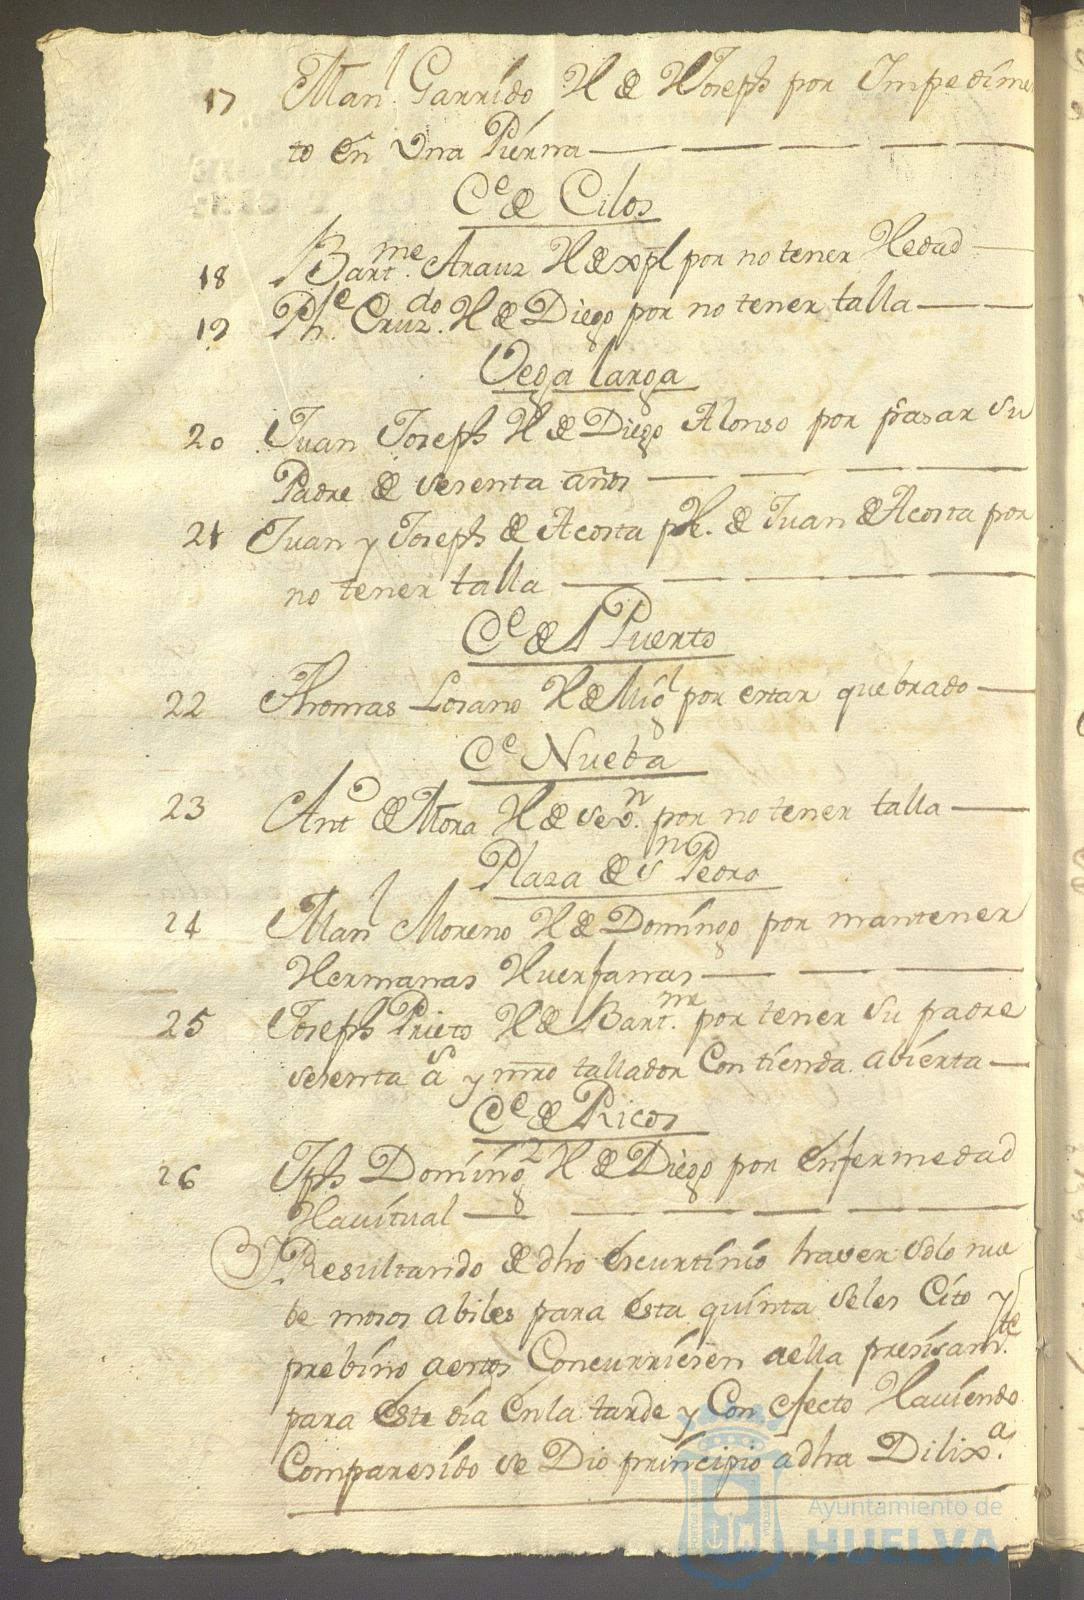 17 Man.l Garrido H de Joseph por Impedimen
to en Una Pierna
C.e de Cilos
18 Bart.me Arauz H de xpl por no tener Hedad
19 Ph.e Cruz.do H de Diego por no tener talla
Vega larga
20 Juan Joseph H de Diego Alonso por pasar su
Padre de sesenta años
21 Juan y Joseph de Acosta H. de Juan de Acosta por
no tener talla
C.e del Puerto
22 Thomas Losano H de Mig.l por estar quebrado
C.e Nueba
23 Ant.o de Mora H de Seb.n por no tener talla
Plaza de S.n Pedro
24 Man.l Moreno H de Domingo por mantener
Hermanas Huerfanas
25 Joseph Prieto H de Bart.me por tener su padre
sesenta a.s y mro tallador Con tienda abierta
C.e de Ricos
26 Jph Doming.z H de Diego por enfermedad
Havitual
Resultando de dho escurtinio haver solo nue
be mosos abiles para esta quinta seles Cito y
prebino aestos Concurriesen aella presisam.te
para este dia enla tarde y Con efecto Haviendo
Comparesido se Dio principio adha Dilix.a
Ayuntamiento de
HUELVA